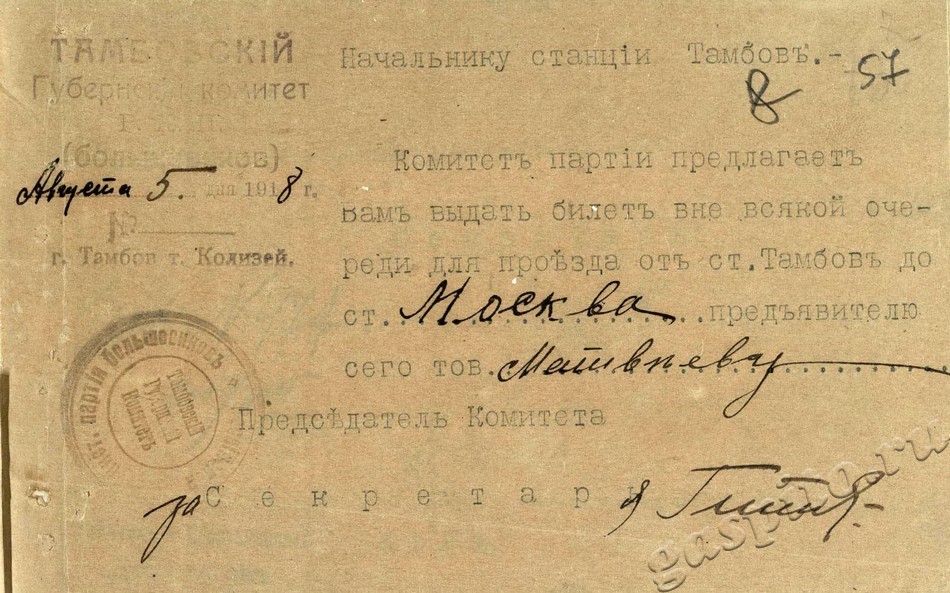 ТАМБОВСКІЙ
Губернскій комитет
(большевиков)
Августа 5. дня 1918 г.
№
г. Тамбов т. Колизей.
Начальнику станціи Тамбовъ.-
8 57
Комитетъ партіи предлагаетъ
Вамъ выдать билетъ вне всякой оче-
реди для проѣзда отъ ст.Тамбовъ до
ст. Москва предъявителю
сего тов. Матвѣеву
Предсѣдатель Комитета
за Секретаря
партіи большевиковъ
Комитетъ
gaspito.ru